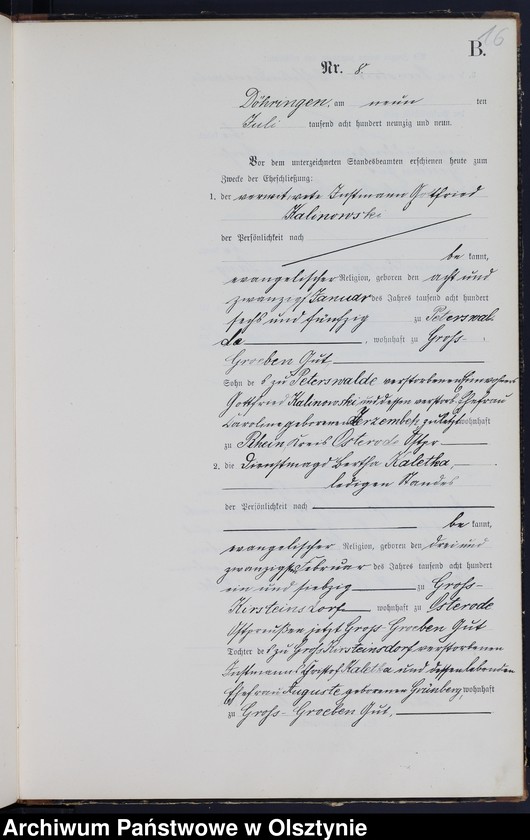 16
B.
Nr. 8.
Döhringen, am neun ten
Juli tausend acht hundert neunzig und neun.
Vor dem unterzeichneten Standesbeamten erschienen heute zum
Zwecke der Eheschließung:
1. der verwitwete Instmann Gottfried
Kalinowski
der Persönlichkeit nach
be kannt,
evangelischer Religion, geboren den acht und
zwanzigs Januar des Jahres tausend acht hundert
sechs und fünfzig zu Peterswal-
de, wohnhaft zu Groß-
Groeben Gut,
Sohn des zu Peterswalde verstorbenen Einwohners
Gottfried Kalinowski und dessen verstorb. Ehefrau
Caroline geborenen zuletzt wohnhaft
zu Rhein Kreis Osterode Ostpr
2. die Dienstmagd Bertha Kaletka,
ledigen Standes
der Persönlichkeit nach
be kannt,
evangelischer Religion, geboren den drei und
zwanzigst Februar des Jahres tausend acht hundert
ein und siebzig zu Groß-
Kirsteinsdorf, wohnhaft zu Osterode
Ostpreußen jetzt Groß-Groeben Gut
Tochter des zu Groß Kirsteinsdorf verstorbenen
Instmanns Christof Kaletka und dessen lebenden
Ehefrau Auguste geborenen Grünberg, wohnhaft
zu Groß-Groeben Gut,
Archiwum Państwowe w Olsztynie